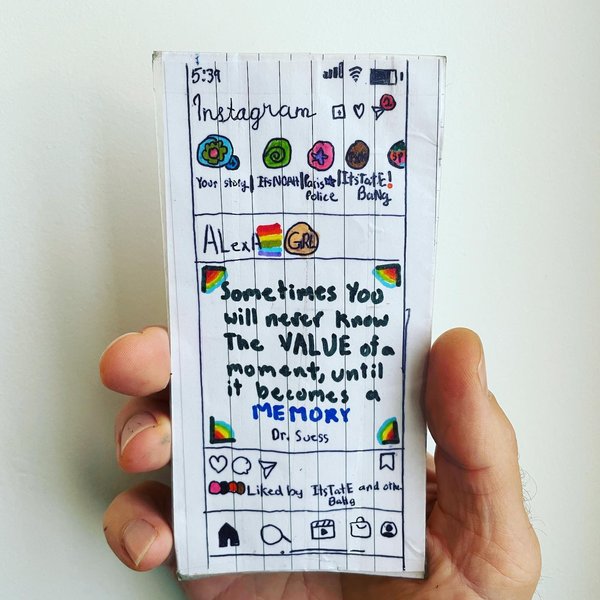 5:39
Instagram
2
Your story| ItsNOAH| Paris Police |ItsTatE! BaNg
ALexA GiRL
Sometimes You
will never know
The VALUE of a
moment, until
it becomes a
MEMORY
Dr. Suess
Liked by ItsTatE BaNg and othe